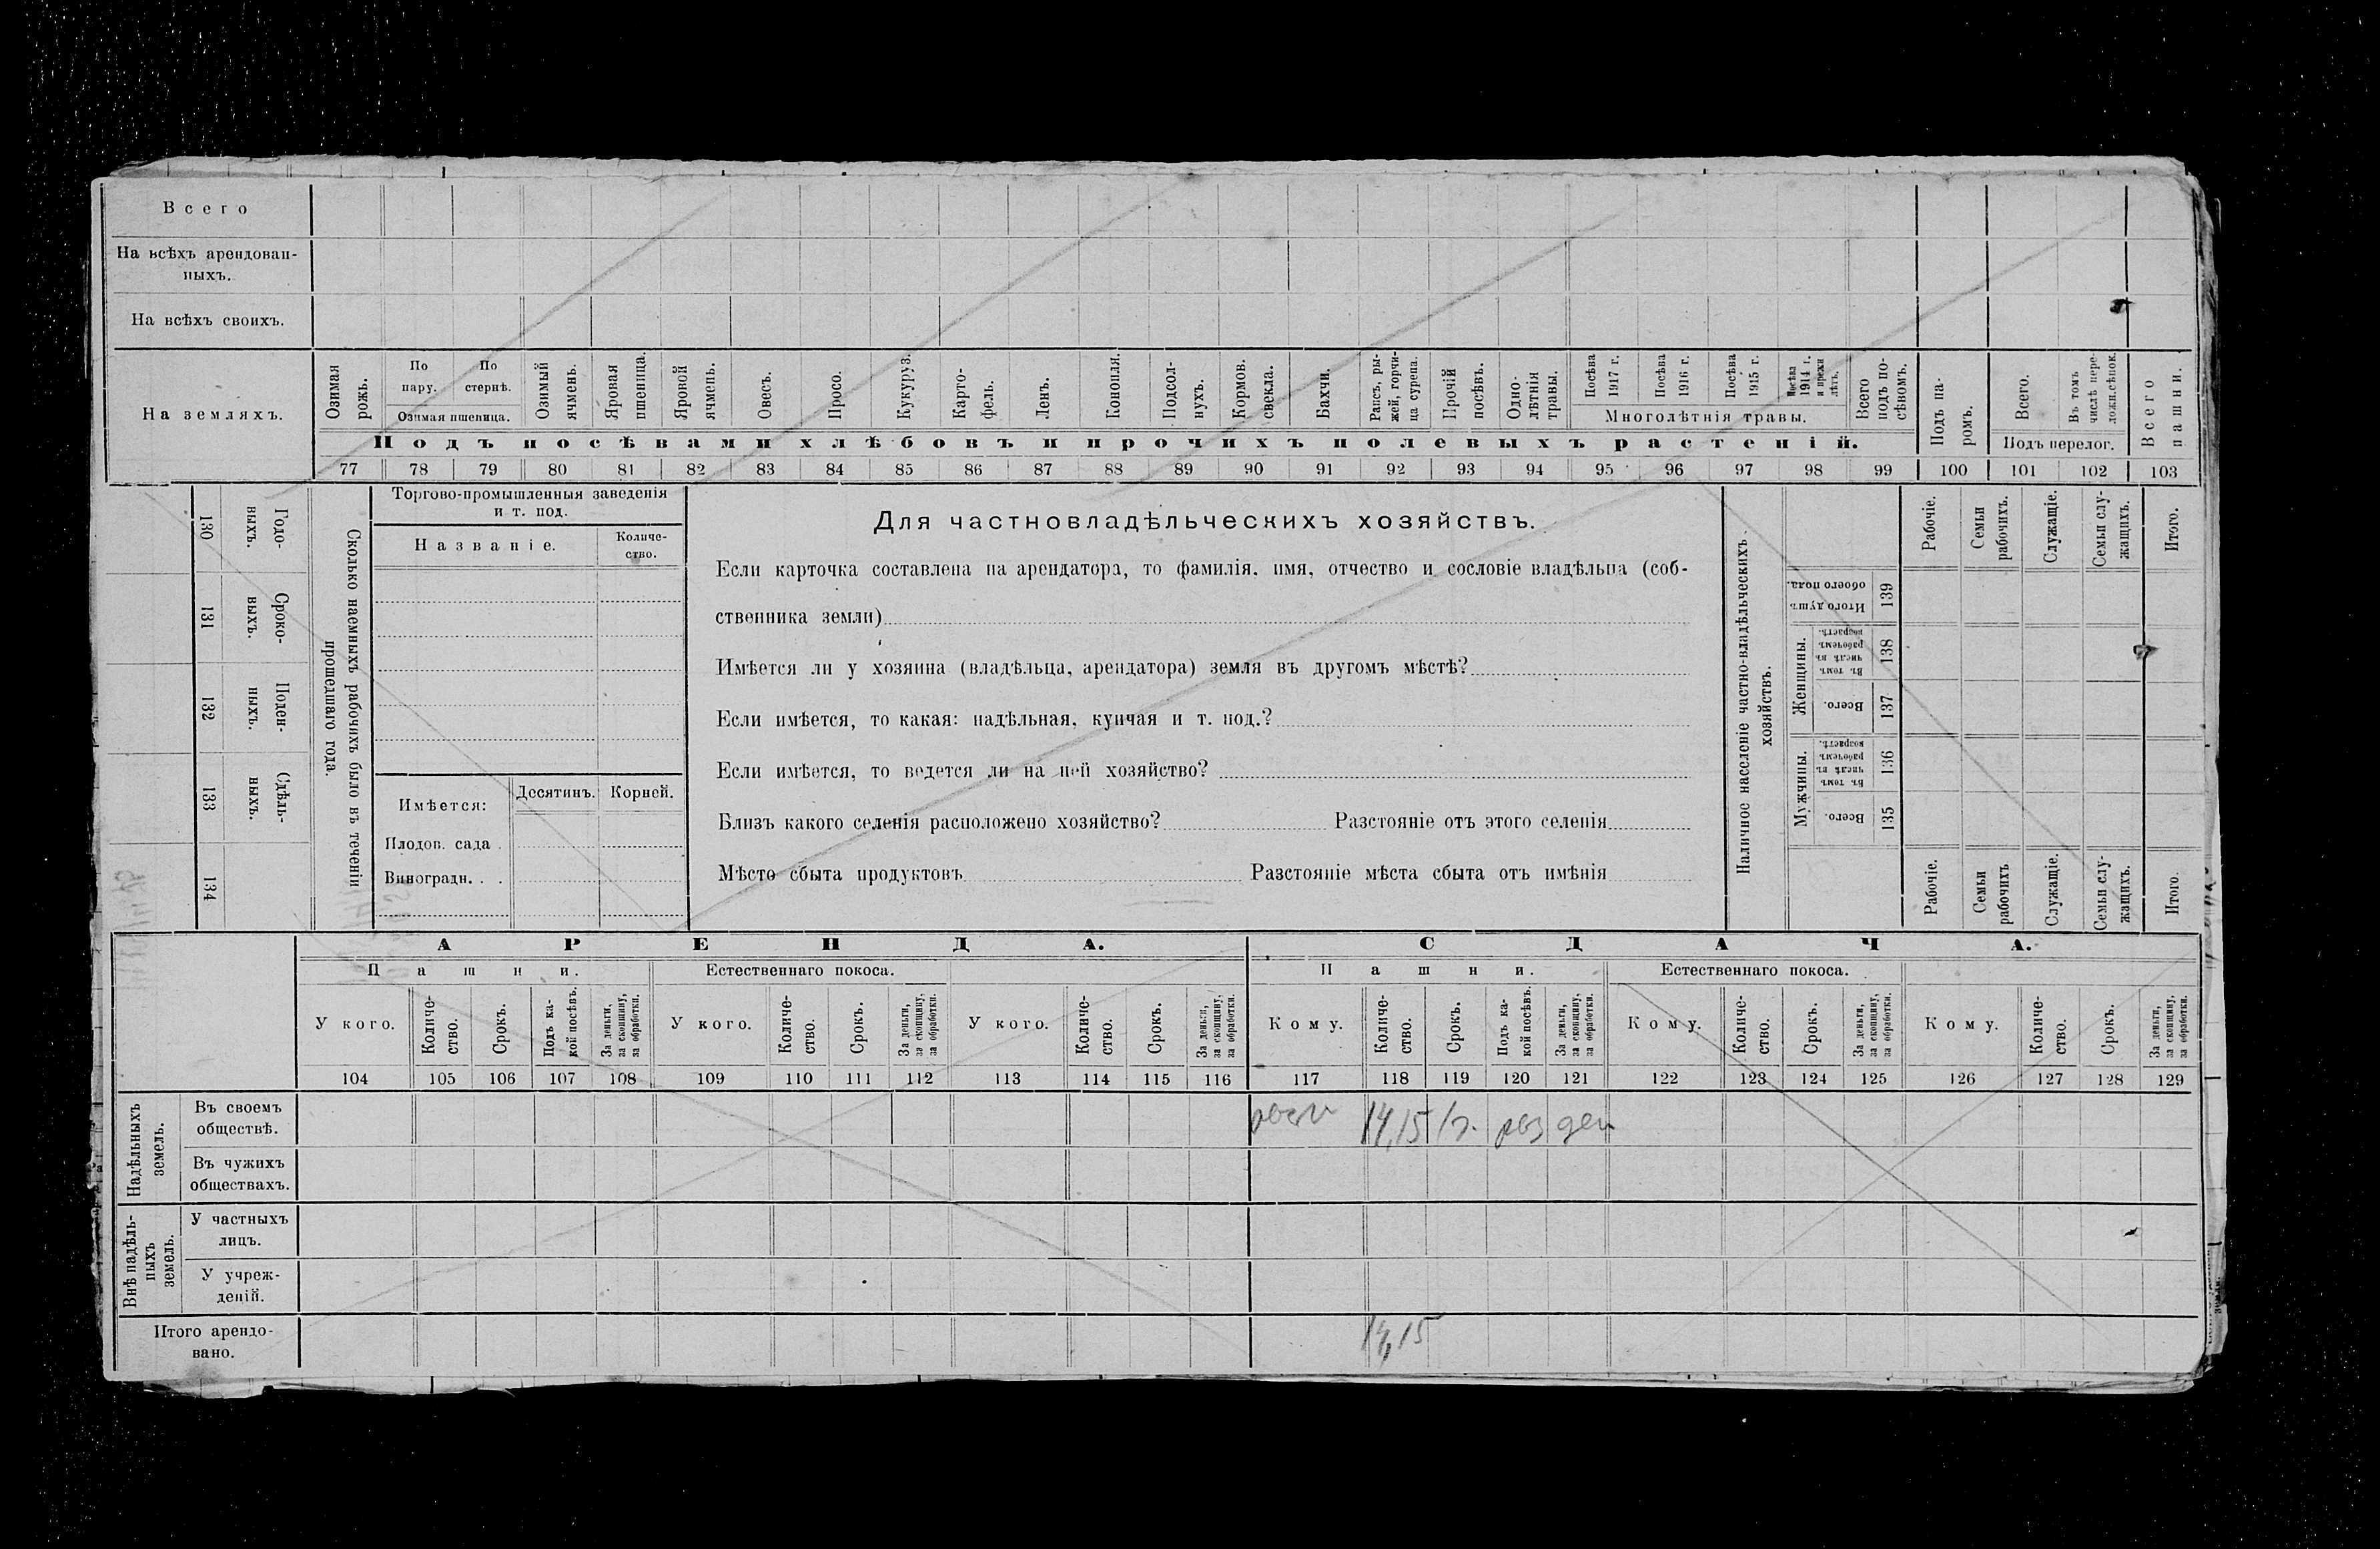 Всего
На всѣхъ арендован-
ныхъ.
На всѣхъ своихъ.
На земляхъ.
Озимая рожь.
По пару.
По стернѣ.
Озимая пшеница.
Озимый ячмень.
Яровая пшеница.
Яровой ячмень.
Овесъ.
Просо.
Кукуруз.
Карто-
фель.
Ленъ.
Конопля.
Подсол-
нухъ.
Кормов. свекла.
Бахчи.
Рапсъ, ры-
жей, горчи-
ца сурепа.
Прочій посѣвъ.
Одно-
лѣтнія
травы.
Посѣва 1917 г.
Посѣва 1916 г.
Посѣва 1915 г.
Посѣва 1914 г. и прежн лѣтъ.
Многолѣтнія травы.
Всего подъ по-
сѣвомъ.
Подъ па-
ромъ.
Всего.
Въ томъ числѣ пере-
ложн.сѣнок.
Подъ перелог.
Всего пашни.
Подъ посѣвами хлѣбовъ и прочихъ полевыхъ растеній.
77 78 79 80 81 82 83 84 85 86 87 88 89 90 91 92 93 94 95 96 97 98 99 100 101 102 103
Сколько наемныхъ рабочихъ было въ теченіи
прошедшаго года.
Годо-
выхъ.
130
Сроко-
выхъ.
131
Поден-
ныхъ.
132
Сдѣль-
ныхъ.
133
134
Торгово-промышленныя заведенія
и т. под.
Названіе.
Количе-
ство.
Имѣется:
Десятинъ.
Корней.
Плодов. сада .
Виноградн. . .
Для частновладѣльческихъ хозяйствъ.
Если карточка составлена на арендатора, то фамилія, имя, отчество и сословіе владѣльца (соб-
ственника земли)
Имѣется ли у хозяина (владѣльца, арендатора) земля въ другомъ мѣстѣ?
Если имѣется, то какая: надѣльная, купчая и т. под.?
Если имѣется, то ведется ли на ней хозяйство?
Близъ какого селенія расположено хозяйство? Разстояніе отъ этого селенія
Мѣсто сбыта продуктовъ Разстояніе мѣста сбыта отъ имѣнія
Наличное населеніе частно-владѣльческихъ
хозяйствъ.
Рабочіе.
Семьи рабочихъ.
Служащіе.
Семьи слу-
жащихъ.
Итого.
Итого душъ
обоего пола.
139
Женщины.
Въ томъ числѣ въ рабочемъ возрастѣ.
138
Всего.
137
Мужчины.
Въ томъ числѣ въ рабочемъ возрастѣ.
136
Всего.
135
Рабочіе.
Семьи рабочихъ
Служащіе.
Семьи слу-
жащихъ.
Итого.
АРЕНДА.
СДАЧА.
Пашни.
Естественнаго покоса.
Пашни.
Естественнаго покоса.
У кого.
Количе-
ство.
Срокъ.
Подъ ка-
кой посѣвъ.
За деньги,
за скопщину,
за обработки.
У кого.
Количе-
ство.
Срокъ.
За деньги,
за скопщину,
за обработки.
У кого.
Количе-
ство.
Срокъ.
За деньги,
за скопщину,
за обработки.
Кому.
Количе-
ство.
Срокъ.
Подъ ка-
кой посѣвъ.
За деньги,
за скопщину,
за обработки.
Кому.
Количе-
ство.
Срокъ.
За деньги,
за скопщину,
за обработки.
Кому.
Количе-
ство.
Срокъ.
За деньги,
за скопщину,
за обработки.
104 105 106 107 108 109 110 111 112 113 114 115 116 117 118 119 120 121 122 123 124 125 126 127 128 129
Надѣльныхъ
земель.
Въ своемъ
обществѣ.
14,15 1г. раз ден
Въ чужихъ
обществахъ.
Внѣ надѣль-
ныхъ
земель.
У частныхъ
лицъ.
У учреж-
деній.
Итого арендо-
вано.
14,15